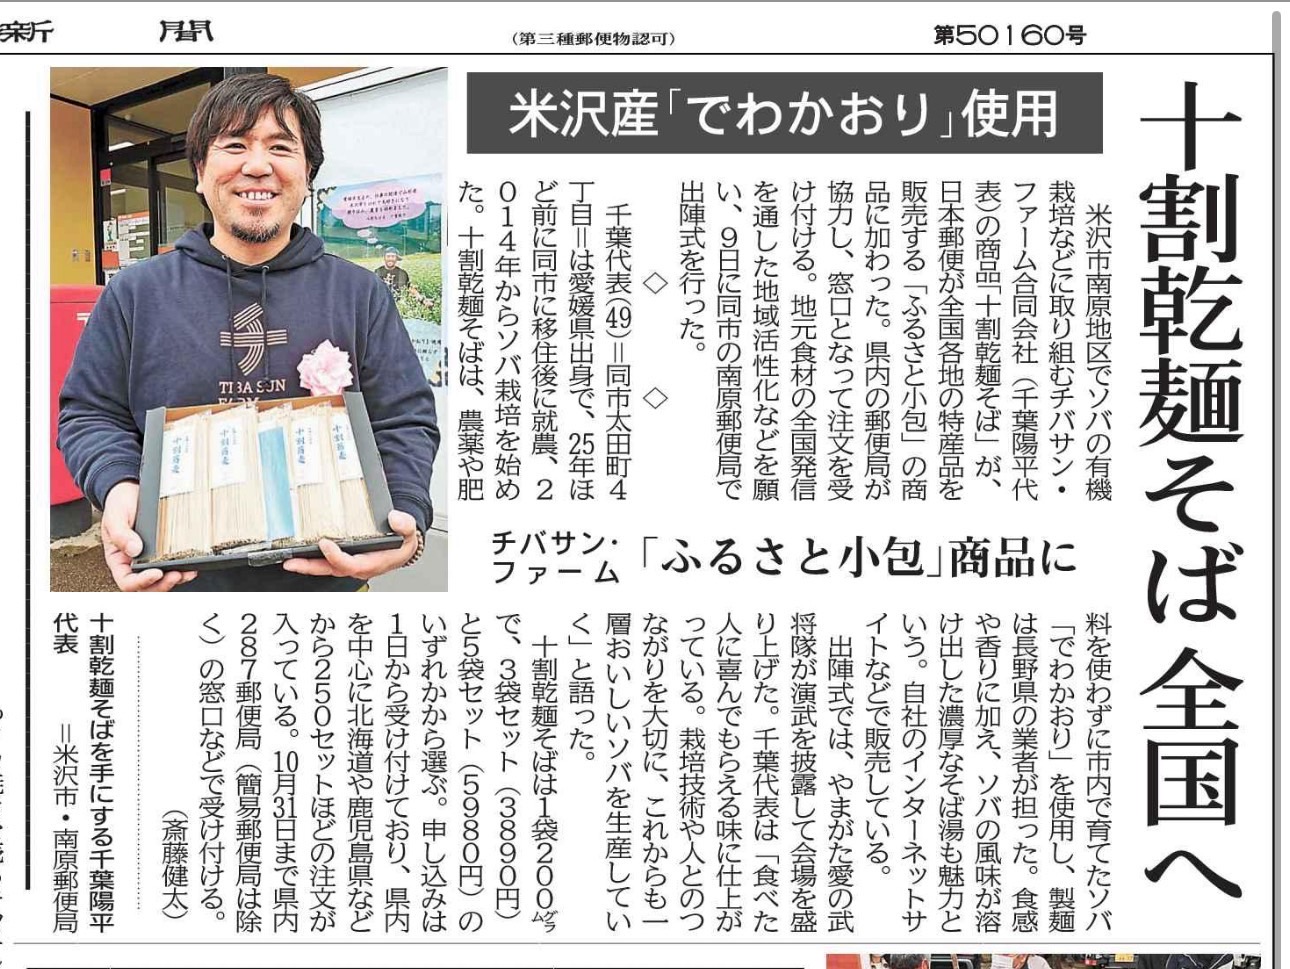 新 聞
(第三種郵便物認可)
第50160号
十割乾麺そば 全国へ
米沢産「でわかおり」使用
米沢市南原地区でソバの有機
栽培などに取り組むチバサン・
ファーム合同会社(千葉陽平代
表)の商品「十割乾麺そば」が、
日本郵便が全国各地の特産品を
販売する「ふるさと小包」の商
品に加わった。県内の郵便局が
協力し、窓口となって注文を受
け付ける。地元食材の全国発信
を通した地域活性化などを願
い、9日に同市の南原郵便局で
出陣式を行った。
◇ ◇
千葉代表(49)=同市太田町4
丁目=は愛媛県出身で、25年ほ
ど前に同市に移住後に就農、2
014年からソバ栽培を始め
た。十割乾麺そばは、農薬や肥
チバサン・
ファーム
「ふるさと小包」商品に
料を使わずに市内で育てたソバ
「でわかおり」を使用し、製麺
は長野県の業者が担った。食感
や香りに加え、ソバの風味が溶
け出した濃厚なそば湯も魅力と
いう。自社のインターネットサ
イトなどで販売している。
出陣式では、やまがた愛の武
将隊が演武を披露して会場を盛
り上げた。千葉代表は「食べた
人に喜んでもらえる味に仕上が
っている。栽培技術や人とのつ
ながりを大切に、これからも一
層おいしいソバを生産してい
く」と語った。
十割乾麺そばは1袋200グラム
で、3袋セット(3890円)
と5袋セット(5980円)の
いずれかから選ぶ。申し込みは
1日から受け付けており、県内
を中心に北海道や鹿児島県など
から250セットほどの注文が
入っている。10月31日まで県内
287郵便局(簡易郵便局は除
く)の窓口などで受け付ける。
(斎藤健太)
十割乾麺そばを手にする千葉陽平
代表 =米沢市・南原郵便局
TIBA SUN
FARM
十割蕎麦
十割蕎麦
十割蕎麦
十割蕎麦